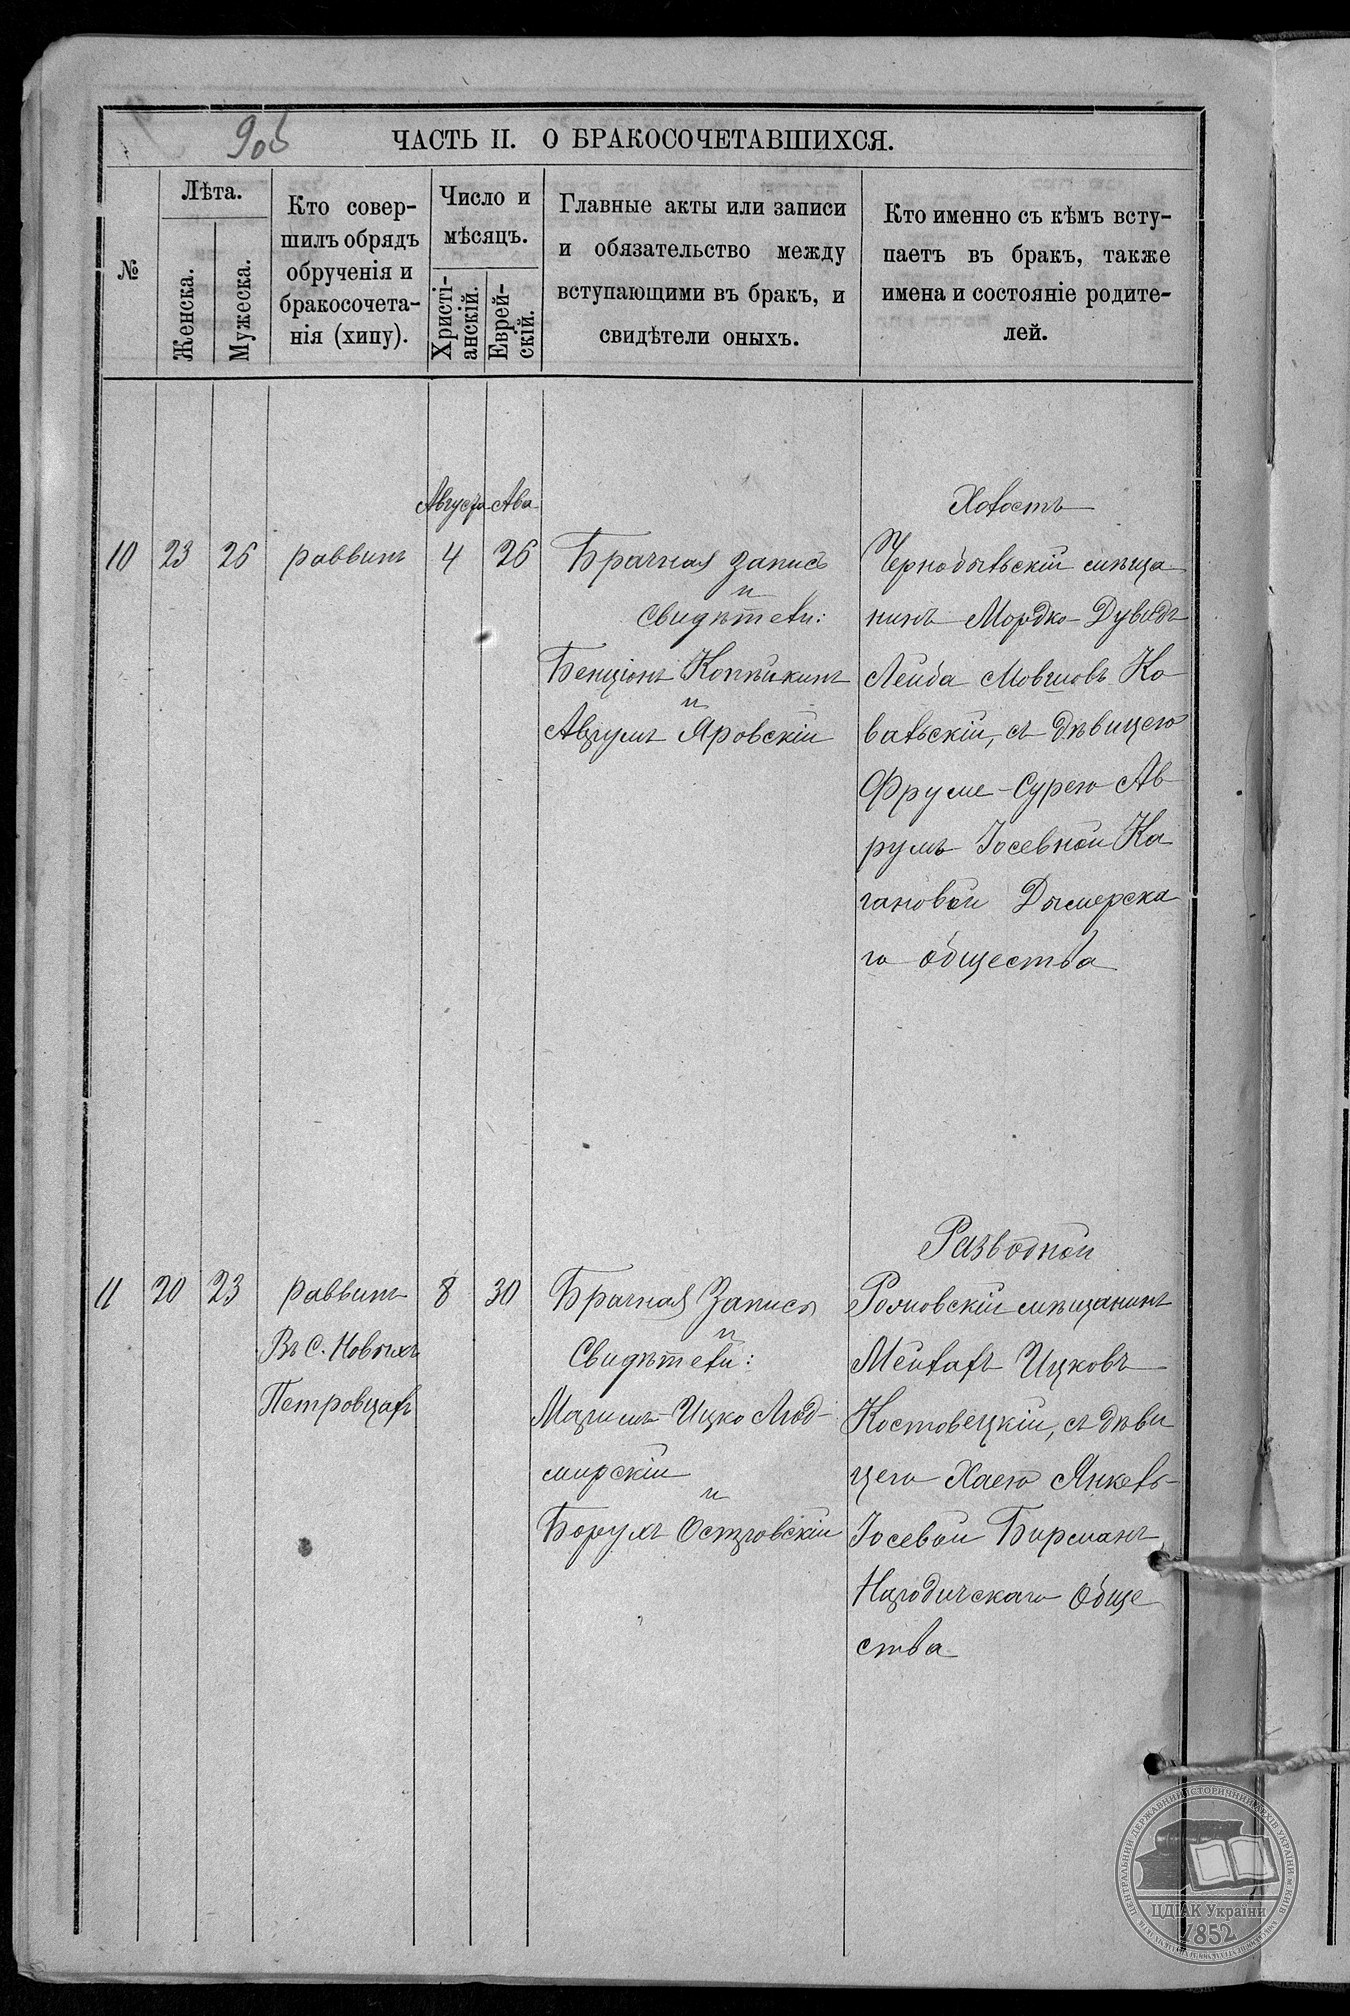 ЧАСТЬ II. О БРАКОСОЧЕТАВШИХСЯ.
№
Лѣта.
Женска.
Мужеска.
Кто совер-
шилъ обрядъ
обрученія и
бракосочета-
нія (хипу).
Число и
мѣсяцъ.
Христі-
анскій.
Еврей-
скій.
Главные акты или записи
и обязательство между
вступающими въ бракъ, и
свидѣтели оныхъ.
Кто именно съ кѣмъ всту-
паетъ въ бракъ, также
имена и состояніе родите-
лей.
Августа Ава
10 23 26 раввинъ 4 26
Брачная запись
и
Свидѣтели:
Бенціонъ Копѣйкинъ
и
Аврумъ Яровскій
Холостъ
Чернобыльскій мѣща-
нинъ Мордко-Дувидъ
Лейба Мовшовъ Ко
вальскій, съ дѣвицею
Фруме-Сурею Ав-
румъ Іосевной Ка
гановой Дымерска
го общества
11 20 23 раввинъ 8 30
Въ С. Новыхъ
Петровцахъ
Брачная Запись
и
Свидѣтели:
Ицко Люд-
мирскій
и
Борухъ Островскій
Разводной
мѣщанинъ
Мейлахъ Ицковъ
Костовецкій, съ дѣви
цею Хаею Янкель-
Іосевой Бирманъ,
Народичскаго обще
ства
ЦЕНТРАЛЬНИЙ ДЕРЖАВНИЙ ІСТОРИЧНИЙ АРХІВ УКРАЇНИ м. КИЇВ
ЦДІАК України
1852